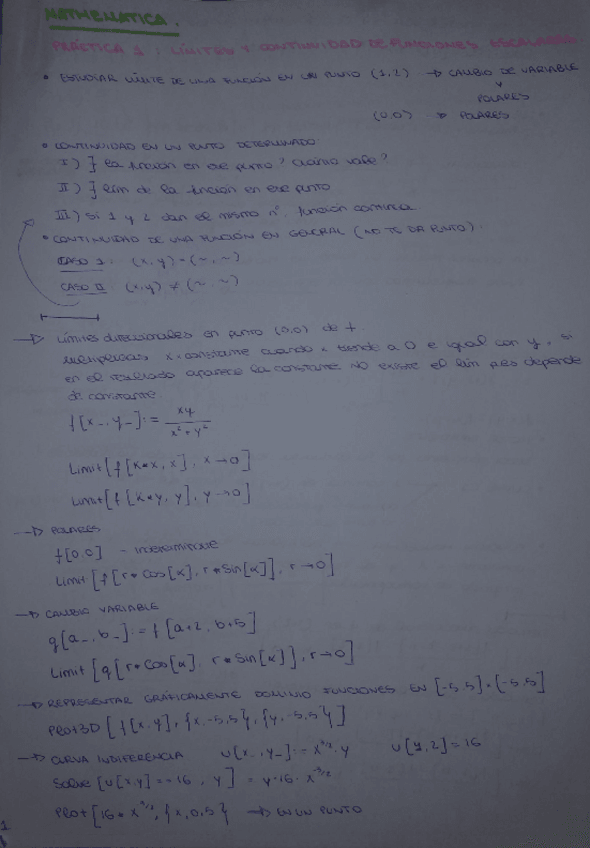 MATHEMATICA.
PRÁCTICA 1: LÍMITES Y CONTINUIDAD DE FUNCIONES ESCALARES
• ESTUDIAR LÍMITE DE UNA FUNCIÓN EN UN PUNTO (1,2) → CAMBIO DE VARIABLE
Y
POLARES
(0,0) → POLARES
• CONTINUIDAD EN UN PUNTO DETERMINADO
I) ∃ la función en ese punto? cuánto vale?
II) ∃ lím de la función en ese punto
III) Si 1 y 2 dan el mismo nº, función continua
• CONTINUIDAD DE UNA FUNCIÓN EN GENERAL (NO TE DA PUNTO).
CASO I: (x,y) = (~,~)
CASO II: (x,y) ≠ (~,~)
→ Límites direccionales en punto (0,0) de f.
multiplicas x·constante cuando x tiende a 0 e igual con y, si
en el resultado aparece la constante NO existe el lím pues depende
de constante.
f[x_,y_]:= xy / x²+y²
Limit[f[k*x, x], x→0]
Limit[f[k*y, y], y→0]
→ POLARES
f[0,0] - Indeterminate
Limit[f[r*Cos[α], r*Sin[α]], r→0]
→ CAMBIO VARIABLE
g[a_,b_]:= f[a+2, b+5]
Limit[g[r*Cos[α], r*Sin[α]], r→0]
→ REPRESENTAR GRÁFICAMENTE DOMINIO FUNCIONES EN [-5,5]×[-5,5]
Plot3D[f[x,y],{x,-5,5},{y,-5,5}]
→ CURVA INDIFERENCIA U[x_,y_]:= x^3/2·y U[4,2]=16
Solve[U[x,y]==16, y] = y=16·x^-3/2
Plot[16*x^3/2,{x,0,5} → EN UN PUNTO
1